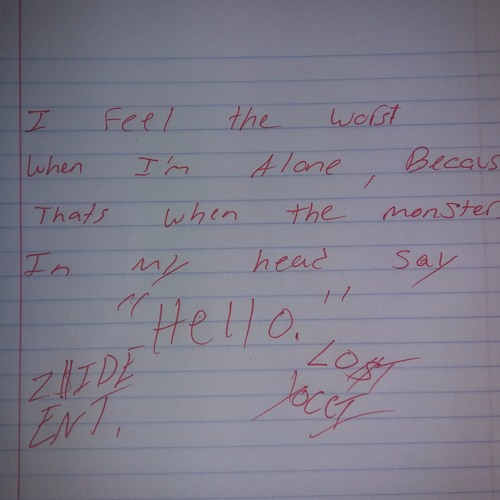 I Feel the worst
When I'm Alone, Becaus
Thats when the monster
In my head say
"Hello."
LO$T
2HIDE
ENT.